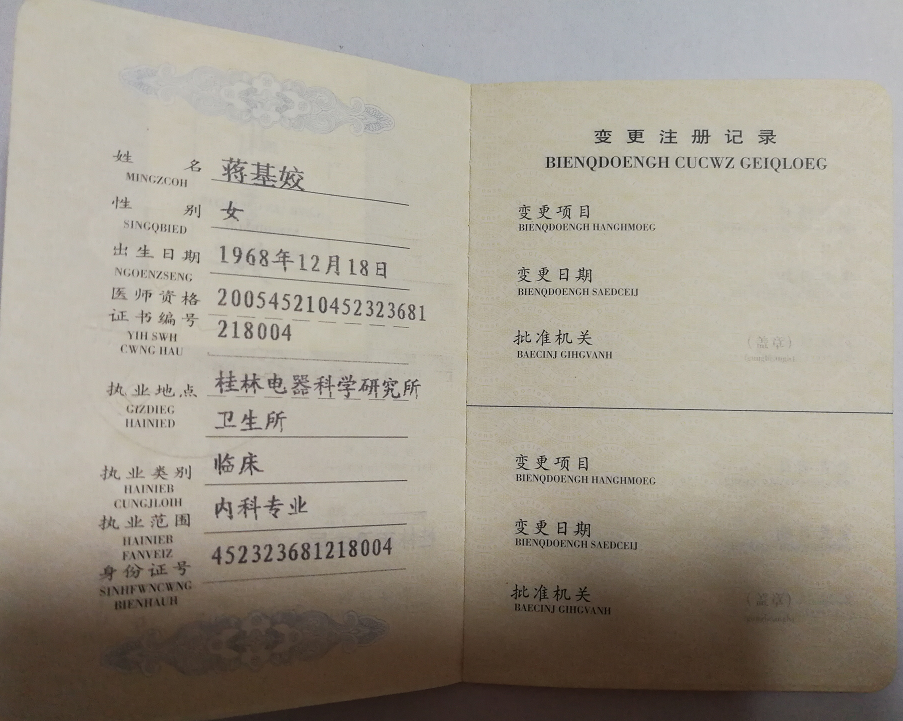 姓名 蒋基姣
MINGZCOH
性别 女
SINGQBIED
出生日期 1968年12月18日
NGOENZSENG
医师资格 200545210452323681
证书编号 218004
YIH SWH
CWNG HAU
执业地点 桂林电器科学研究所
GIZDIEG
HAINIED 卫生所
执业类别 临床
HAINIEB
CUNGJLOIH
执业范围 内科专业
HAINIEB
FANVEIZ
身份证号 452323681218004
SINHFWNCWNG
BIENHAUH
变更注册记录
BIENQDOENGH CUCWZ GEIQLOEG
变更项目
BIENQDOENGH HANGHMOEG
变更日期
BIENQDOENGH SAEDCEIJ
批准机关
BAECINJ GIHGVANH
变更项目
BIENQDOENGH HANGHMOEG
变更日期
BIENQDOENGH SAEDCEIJ
批准机关
BAECINJ GIHGVANH